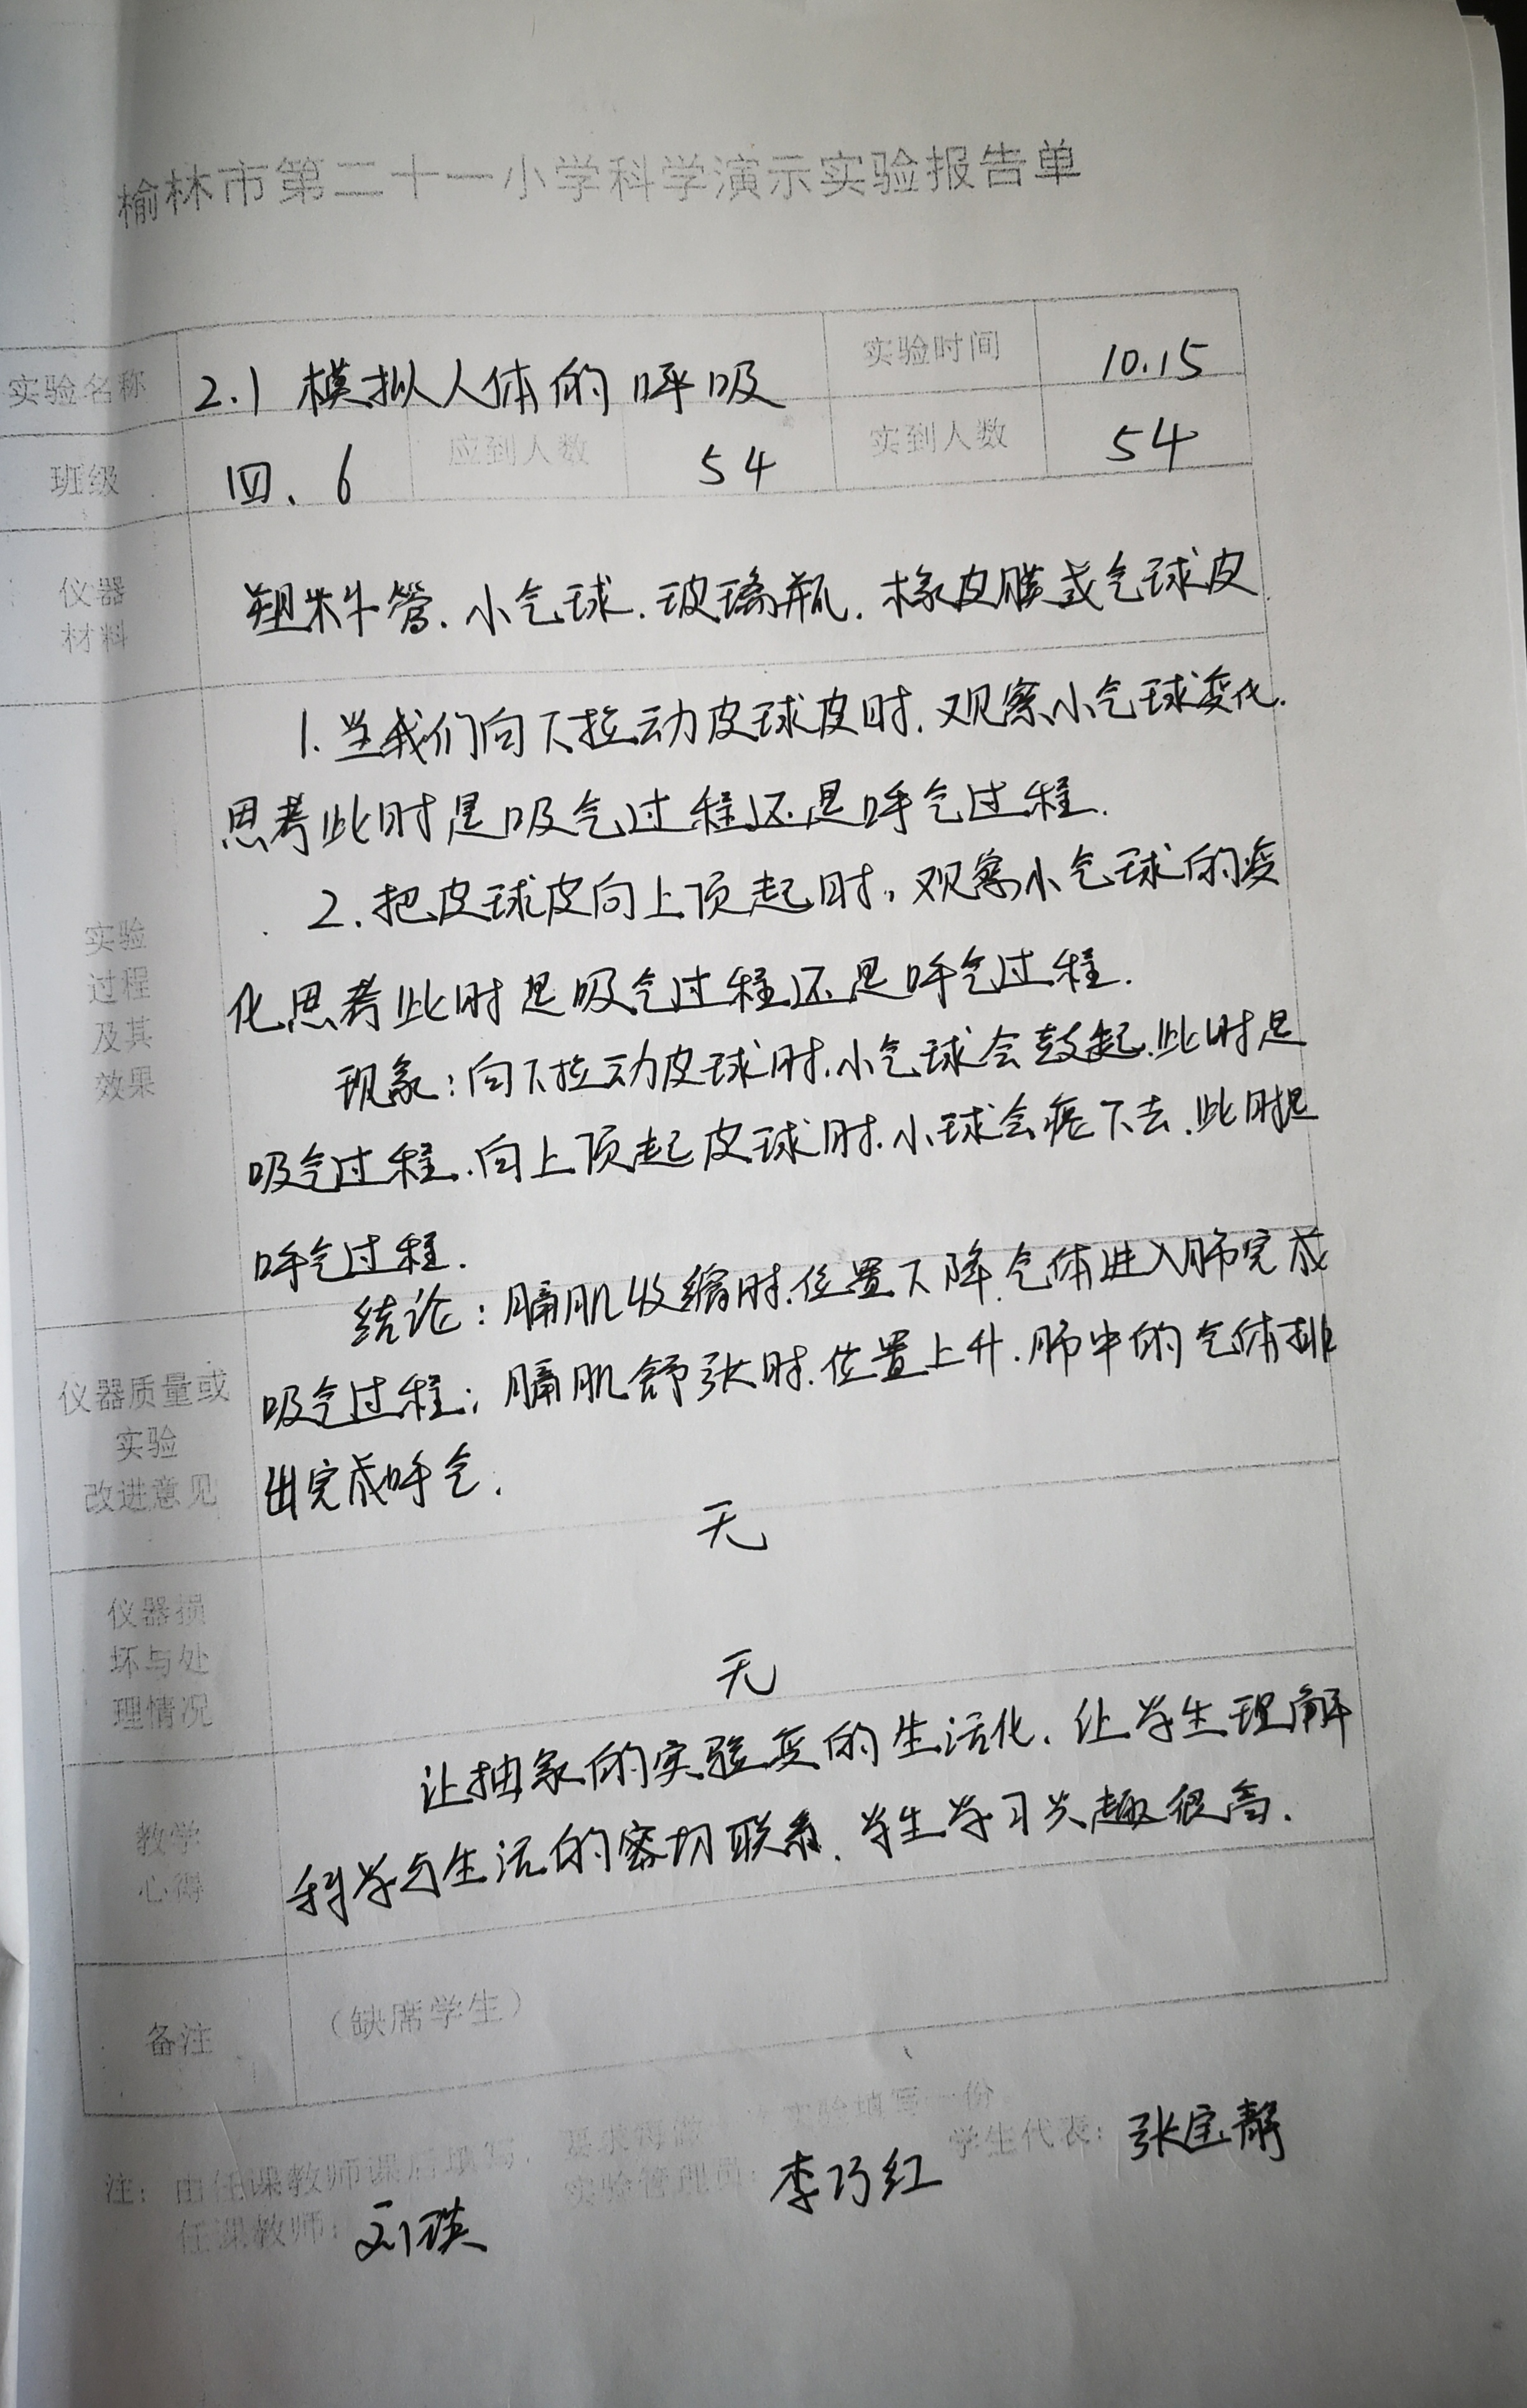 榆林市第二十一小学科学演示实验报告单
实验名称 2.1 模拟人体的呼吸 实验时间 10.15
班级 四.6 应到人数 54 实到人数 54
仪器
材料
塑料管.小气球.玻璃瓶.橡皮膜或气球皮.
实验
过程
及其
效果
1.当我们向下拉动皮球皮时.观察小气球变化.
思考此时是吸气过程还是呼气过程.
2.把皮球皮向上顶起时,观察小气球的变
化思考此时是吸气过程还是呼气过程.
现象:向下拉动皮球时.小气球会鼓起.此时是
吸气过程.向上顶起皮球时.小球会瘪下去.此时是
呼气过程.
结论:膈肌收缩时.位置下降.气体进入肺完成
吸气过程;膈肌舒张时.位置上升.肺中的气体排
出完成呼气.
仪器质量或
实验
改进意见
无
仪器损
坏与处
理情况
无
教学
心得
让抽象的实验变的生活化.让学生理解
科学与生活的密切联系.学生学习兴趣很高.
备注 (缺席学生)
注:由任课教师课后填写, 要求每做 实验填写一份。
任课教师: 刘瑛 实验管理员: 李巧红 学生代表: 张宝静